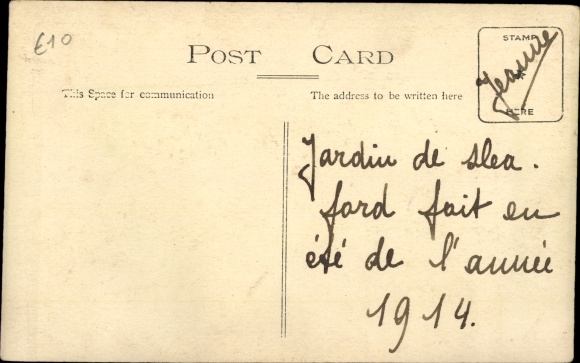 £10
POST CARD
STAMP
Jeanne
HERE
This Space for communication
The address to be written here
Jardin de slea.
ford fait en
été de l'année
1914.